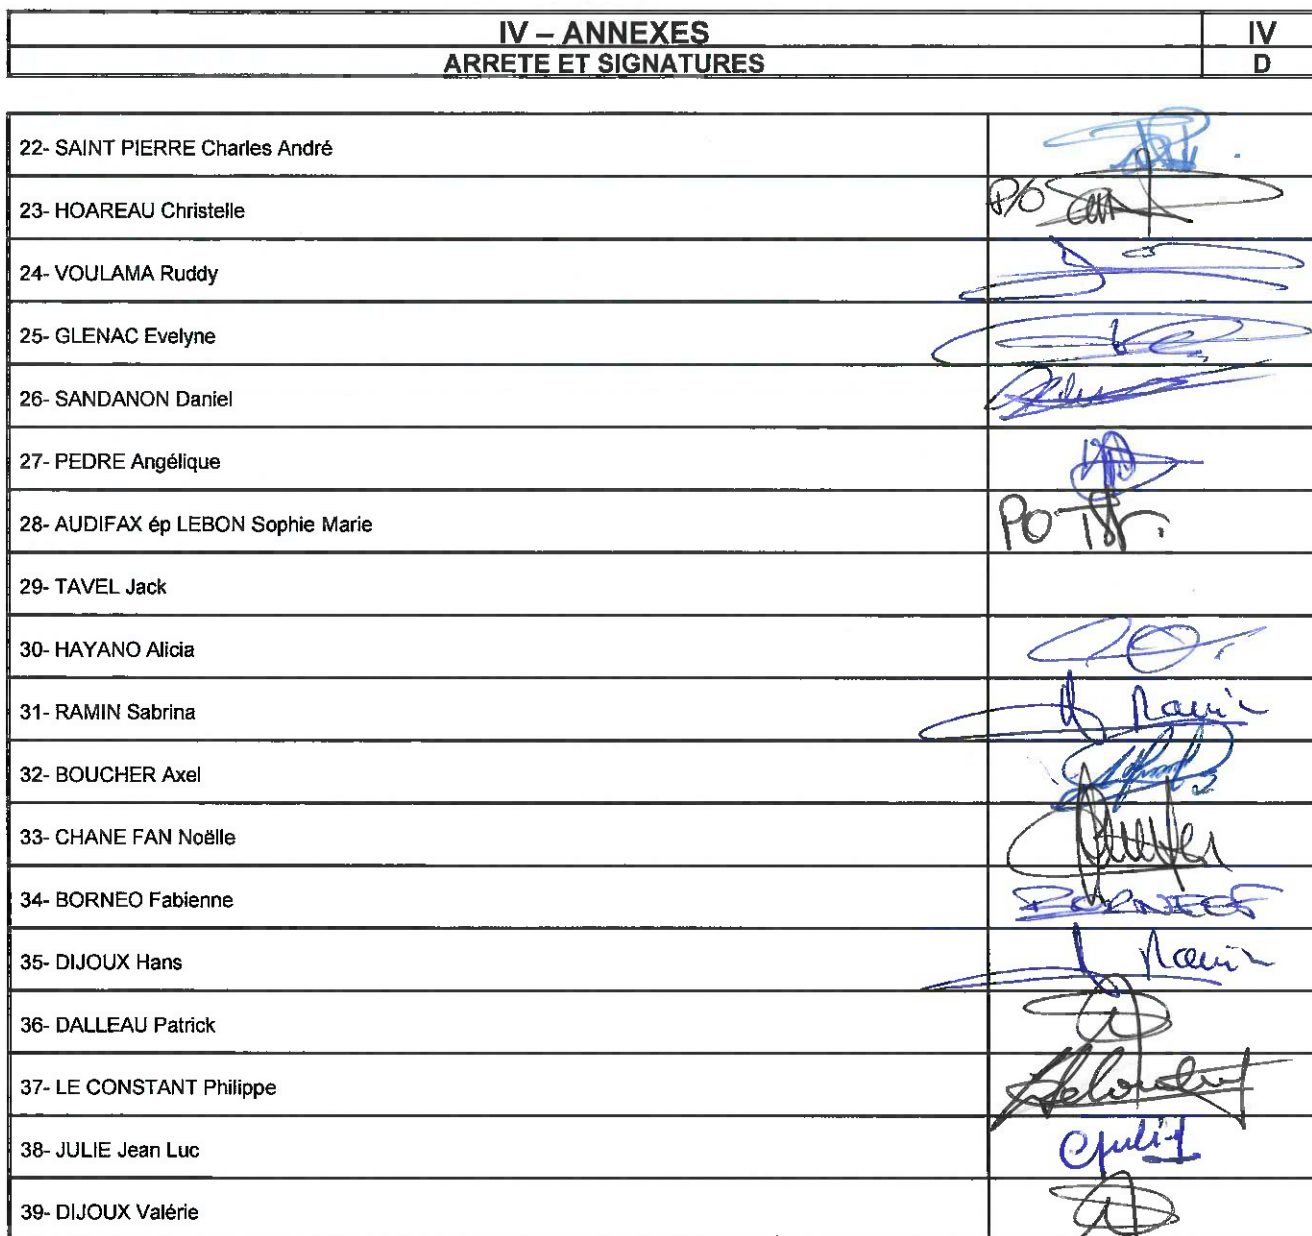 IV – ANNEXES IV
ARRETE ET SIGNATURES D
22- SAINT PIERRE Charles André
23- HOAREAU Christelle P/O
24- VOULAMA Ruddy
25- GLENAC Evelyne
26- SANDANON Daniel
27- PEDRE Angélique
28- AUDIFAX ép LEBON Sophie Marie PO
29- TAVEL Jack
30- HAYANO Alicia
31- RAMIN Sabrina Ramin
32- BOUCHER Axel
33- CHANE FAN Noëlle
34- BORNEO Fabienne
35- DIJOUX Hans Ramin
36- DALLEAU Patrick
37- LE CONSTANT Philippe
38- JULIE Jean Luc
39- DIJOUX Valérie